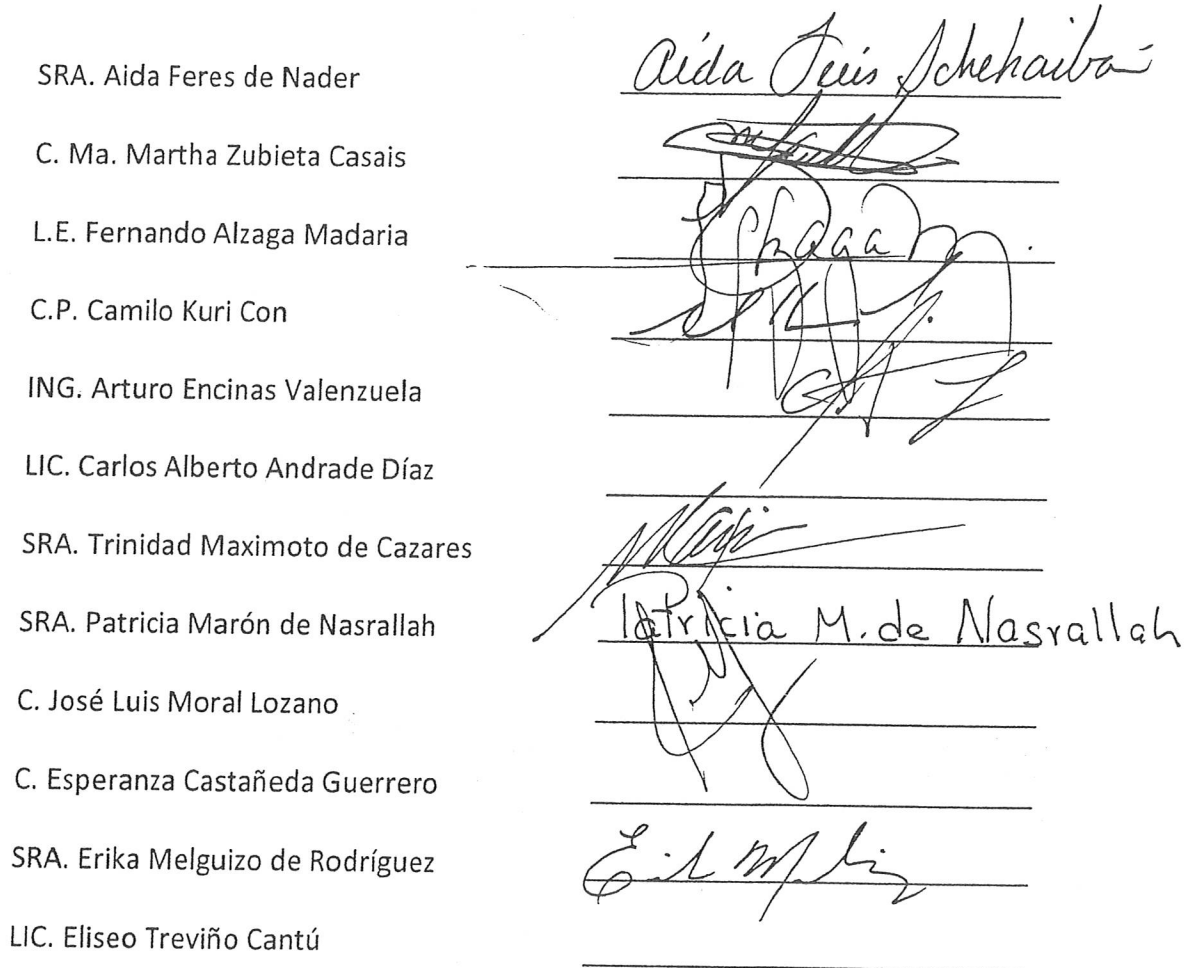 SRA. Aida Feres de Nader
Aída Feres Schehaibá
C. Ma. Martha Zubieta Casais
L.E. Fernando Alzaga Madaria
C.P. Camilo Kuri Con
ING. Arturo Encinas Valenzuela
LIC. Carlos Alberto Andrade Díaz
SRA. Trinidad Maximoto de Cazares
SRA. Patricia Marón de Nasrallah
Patricia M. de Nasrallah
C. José Luis Moral Lozano
C. Esperanza Castañeda Guerrero
SRA. Erika Melguizo de Rodríguez
LIC. Eliseo Treviño Cantú